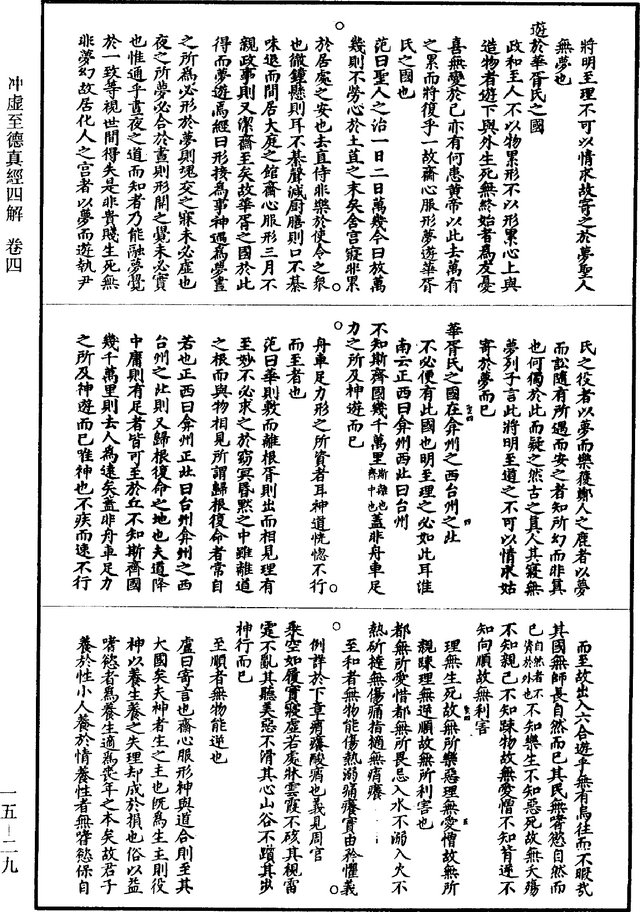 冲虛至德真經四解 卷四
一五－二九
將明至理不可以情求故寄之於夢聖人
無夢也
遊於華胥氏之國
政和王人不以物累形不以形累心上與
造物者遊下與外生死無終始者為友憂
喜無變於己亦有何患黃帝以此去萬有
之累而將復乎一故齋心服形夢遊華胥
氏之國也
范曰聖人之治一日二日萬幾今曰放萬
幾則不勞心於土苴之末矣舍宫寢非累
於居處之安也去直侍非樂於使令之衆
也徹鍾懸則耳不綦聲減厨膳則口不綦
味退而間居大庭之館齋心服形三月不
親政事則又潔齋至矣故華胥之國於此
得而夢遊焉經曰形接為事神遇為夢晝
之所為必形於夢則魂交之寐未必虛也
夜之所夢必合於晝則形開之覺未必實
也惟通乎晝夜之道而知者乃能融夢覺
於一致等視世間得失是非貴賤生死無
非夢幻故居化人之宫者以夢而遊執尹
氏之役者以夢而樂獲鄭人之鹿者以夢
而訟隨有所遇而安之者知所幻而非真
也何獨於此而疑之然古之真人其寢無
夢列子言此將明至道之不可以情求姑
寄於夢而已
華胥氏之國在弇州之西台州之北
不必便有此國也明至理之必如此耳淮
南云正西曰弇州西北曰台州
不知斯齊國幾千萬里斯離也齊中也蓋非舟車足
力之所及神遊而已
舟車足力形之所資者耳神道恍惚不行
而至者也
范曰華則敷而離根胥則出而相見理有
至妙不必求之於窈冥昬默之中雖離道
之根而與物相見所謂歸根復命者常自
若也正西曰弇州正北曰台州弇州之西
台州之北則又歸根復命之地也夫道降
中庸則有足者皆可至於丘不知斯齊國
幾千萬里則去人為遠矣蓋非舟車足力
之所及神遊而已惟神也不疾而速不行
而至故出入六合遊乎無有烏往而不暇哉
其國無師長自然而已其民無嗜慾自然而
已自然者不資於外也不知樂生不知惡死故無夭殤
不知親己不知踈物故無愛憎不知背逆不
知向順故無利害
理無生死故無所樂惡理無愛憎故無所
親踈理無逆順故無所利害也
都無所愛惜都無所畏忌入水不溺入火不
熱斫撻無傷痛指擿無痟癢
至和者無物能傷熱溺痛癢實由矜懼義
例詳於下章痟癢酸痟也義見周官
乘空如履實寢虛若處牀雲霧不硋其視雷
霆不亂其聽美惡不滑其心山谷不躓其步
神行而已
至順者無物能逆也
盧曰寄言也齋心服形神與道合則至其
大國矣夫神者生之主也旣為生主則役
神以養生養之失理却成於損也俗以益
嗜慾者為養生適為喪年之本矣故君子
養於性小人養於情養性者無嗜慾保自